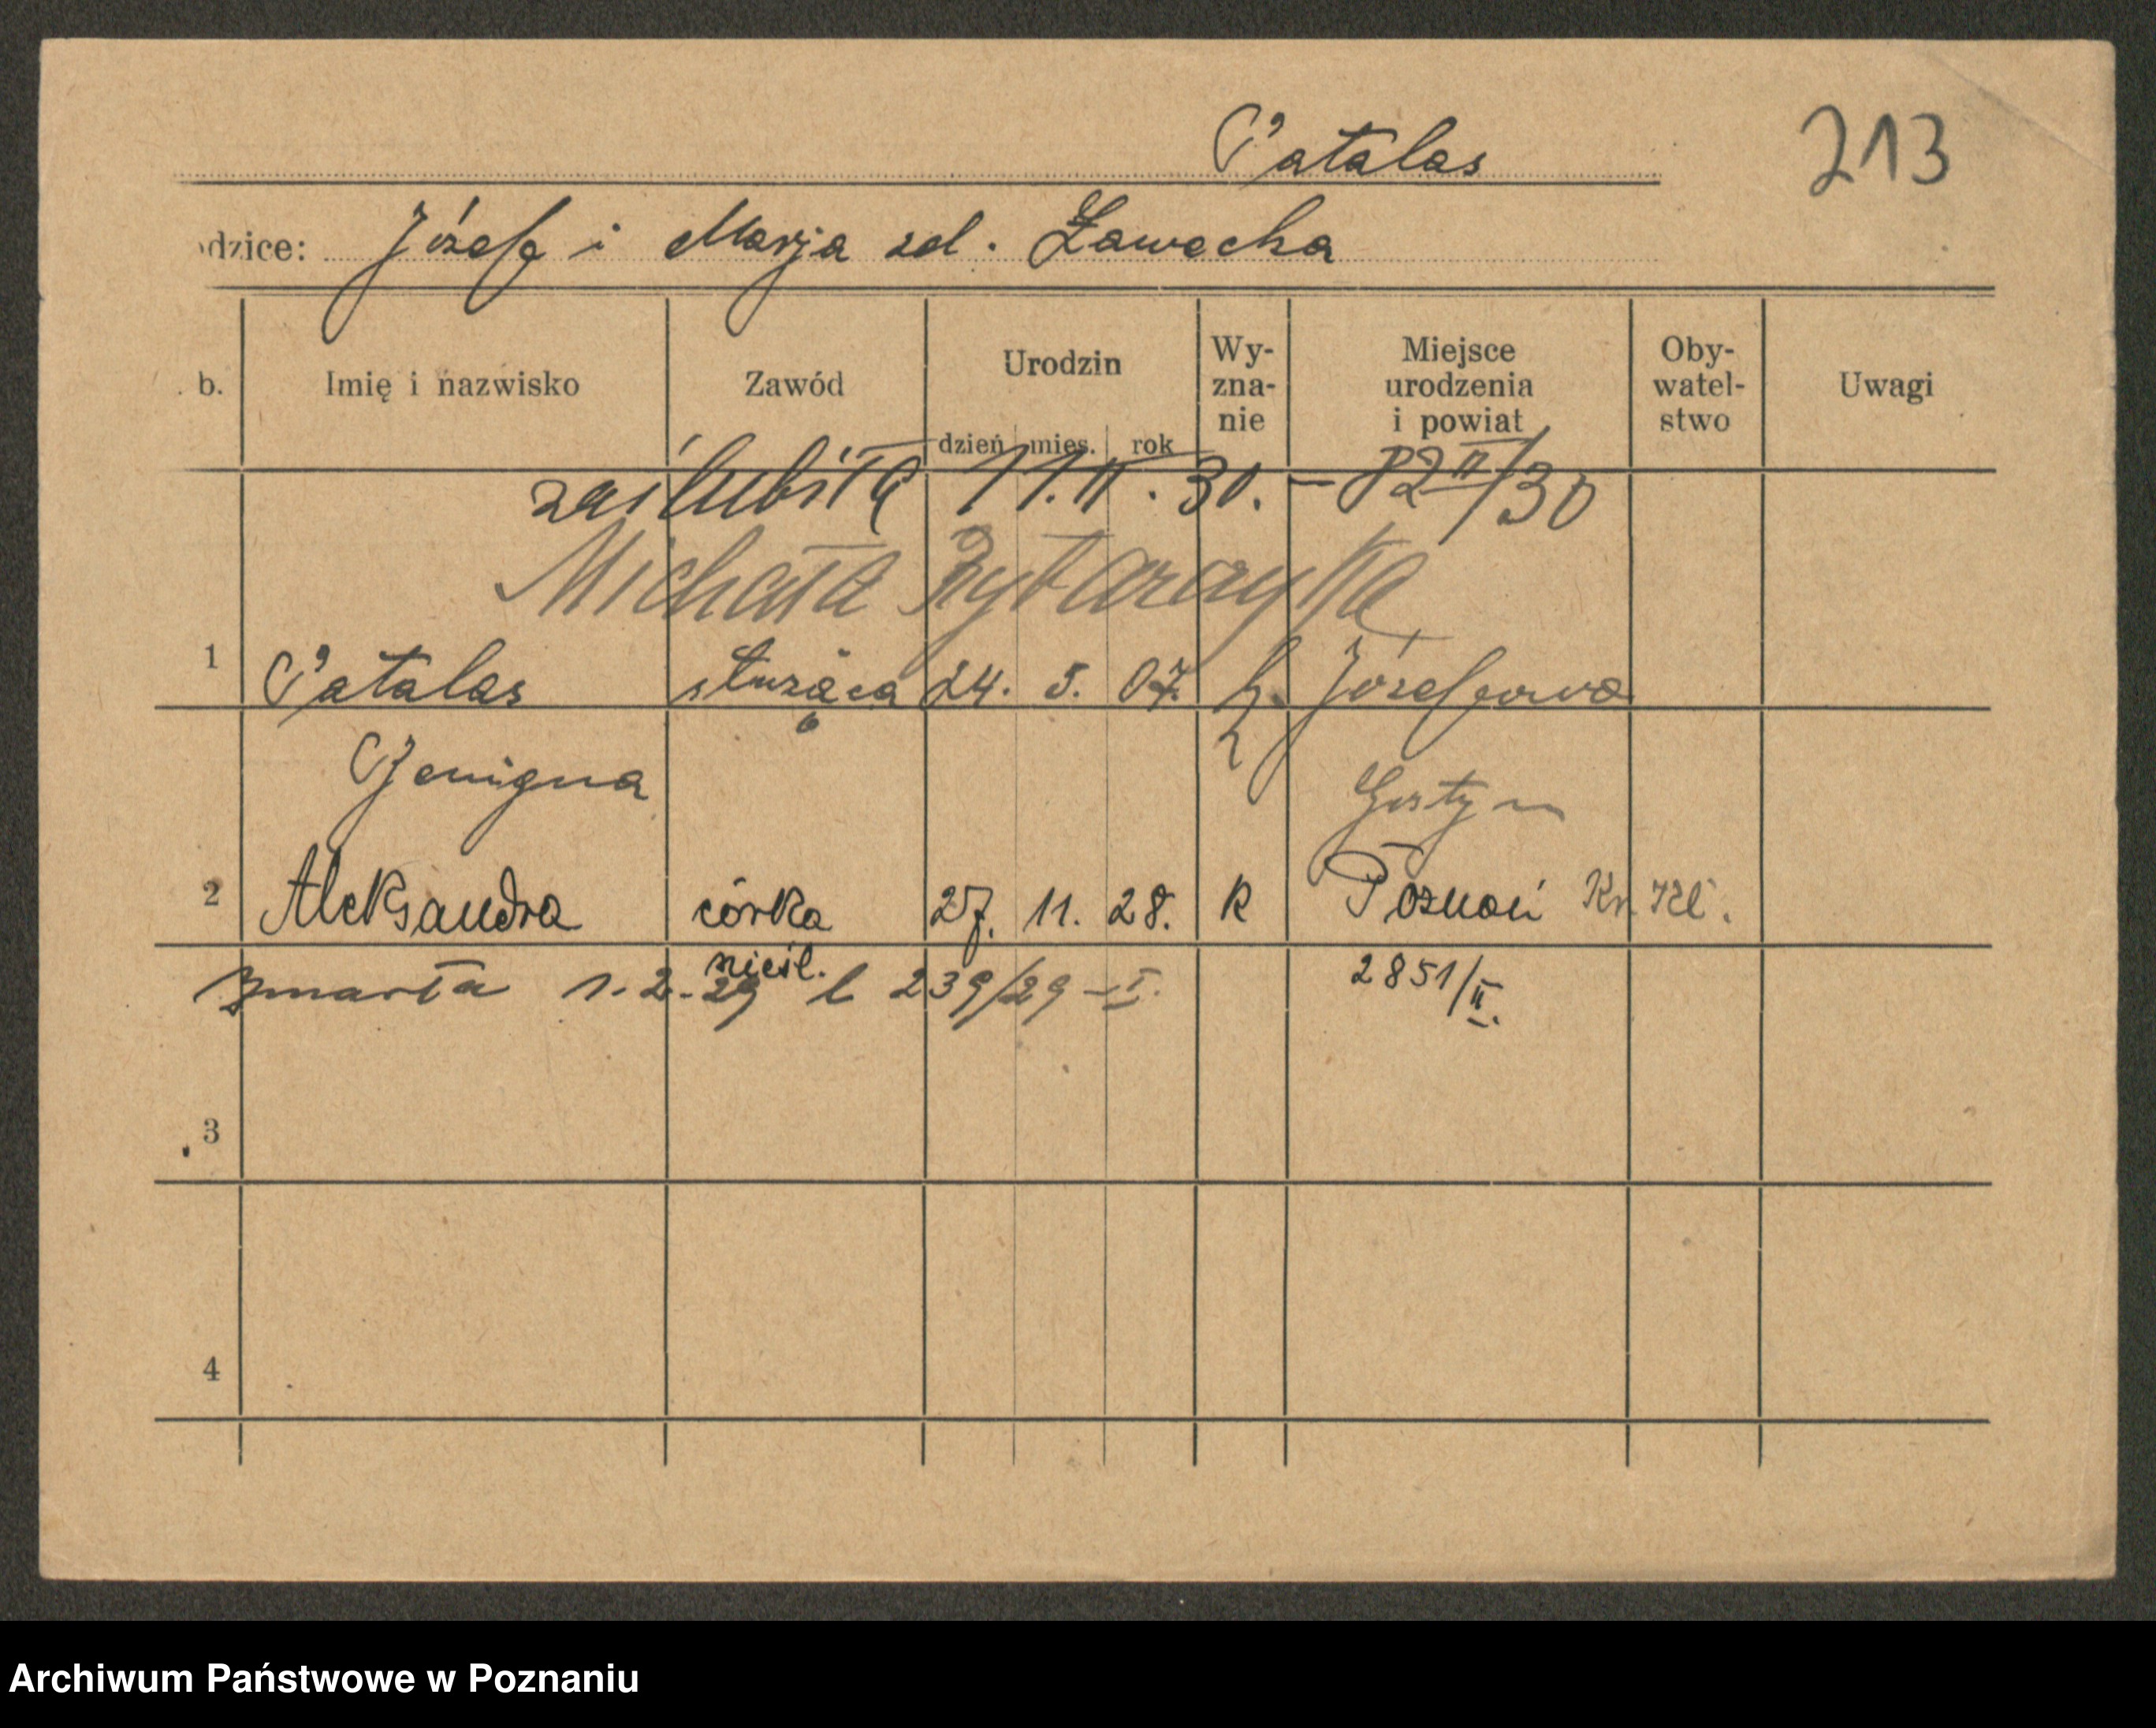 Patalas
213
odzice: Józef i Marja zd. Ławecka
b. Imię i nazwisko Zawód Urodzin dzień mies. rok Wy-zna-nie Miejsce urodzenia i powiat Oby-watel-stwo Uwagi
zaślubiła 11. II. 30. – P2 II/30
Michała Rybarczyka
1 Patalas służąca 24. 5. 07. k. Józefowo
Benigna Gostyn
2 Aleksandra córka 27. 11. 28. K Poznań Kr. Kl.
nieśl. 2851/II.
zmarła 1. 2. 29 l 239/29 – I.
3
4
Archiwum Państwowe w Poznaniu